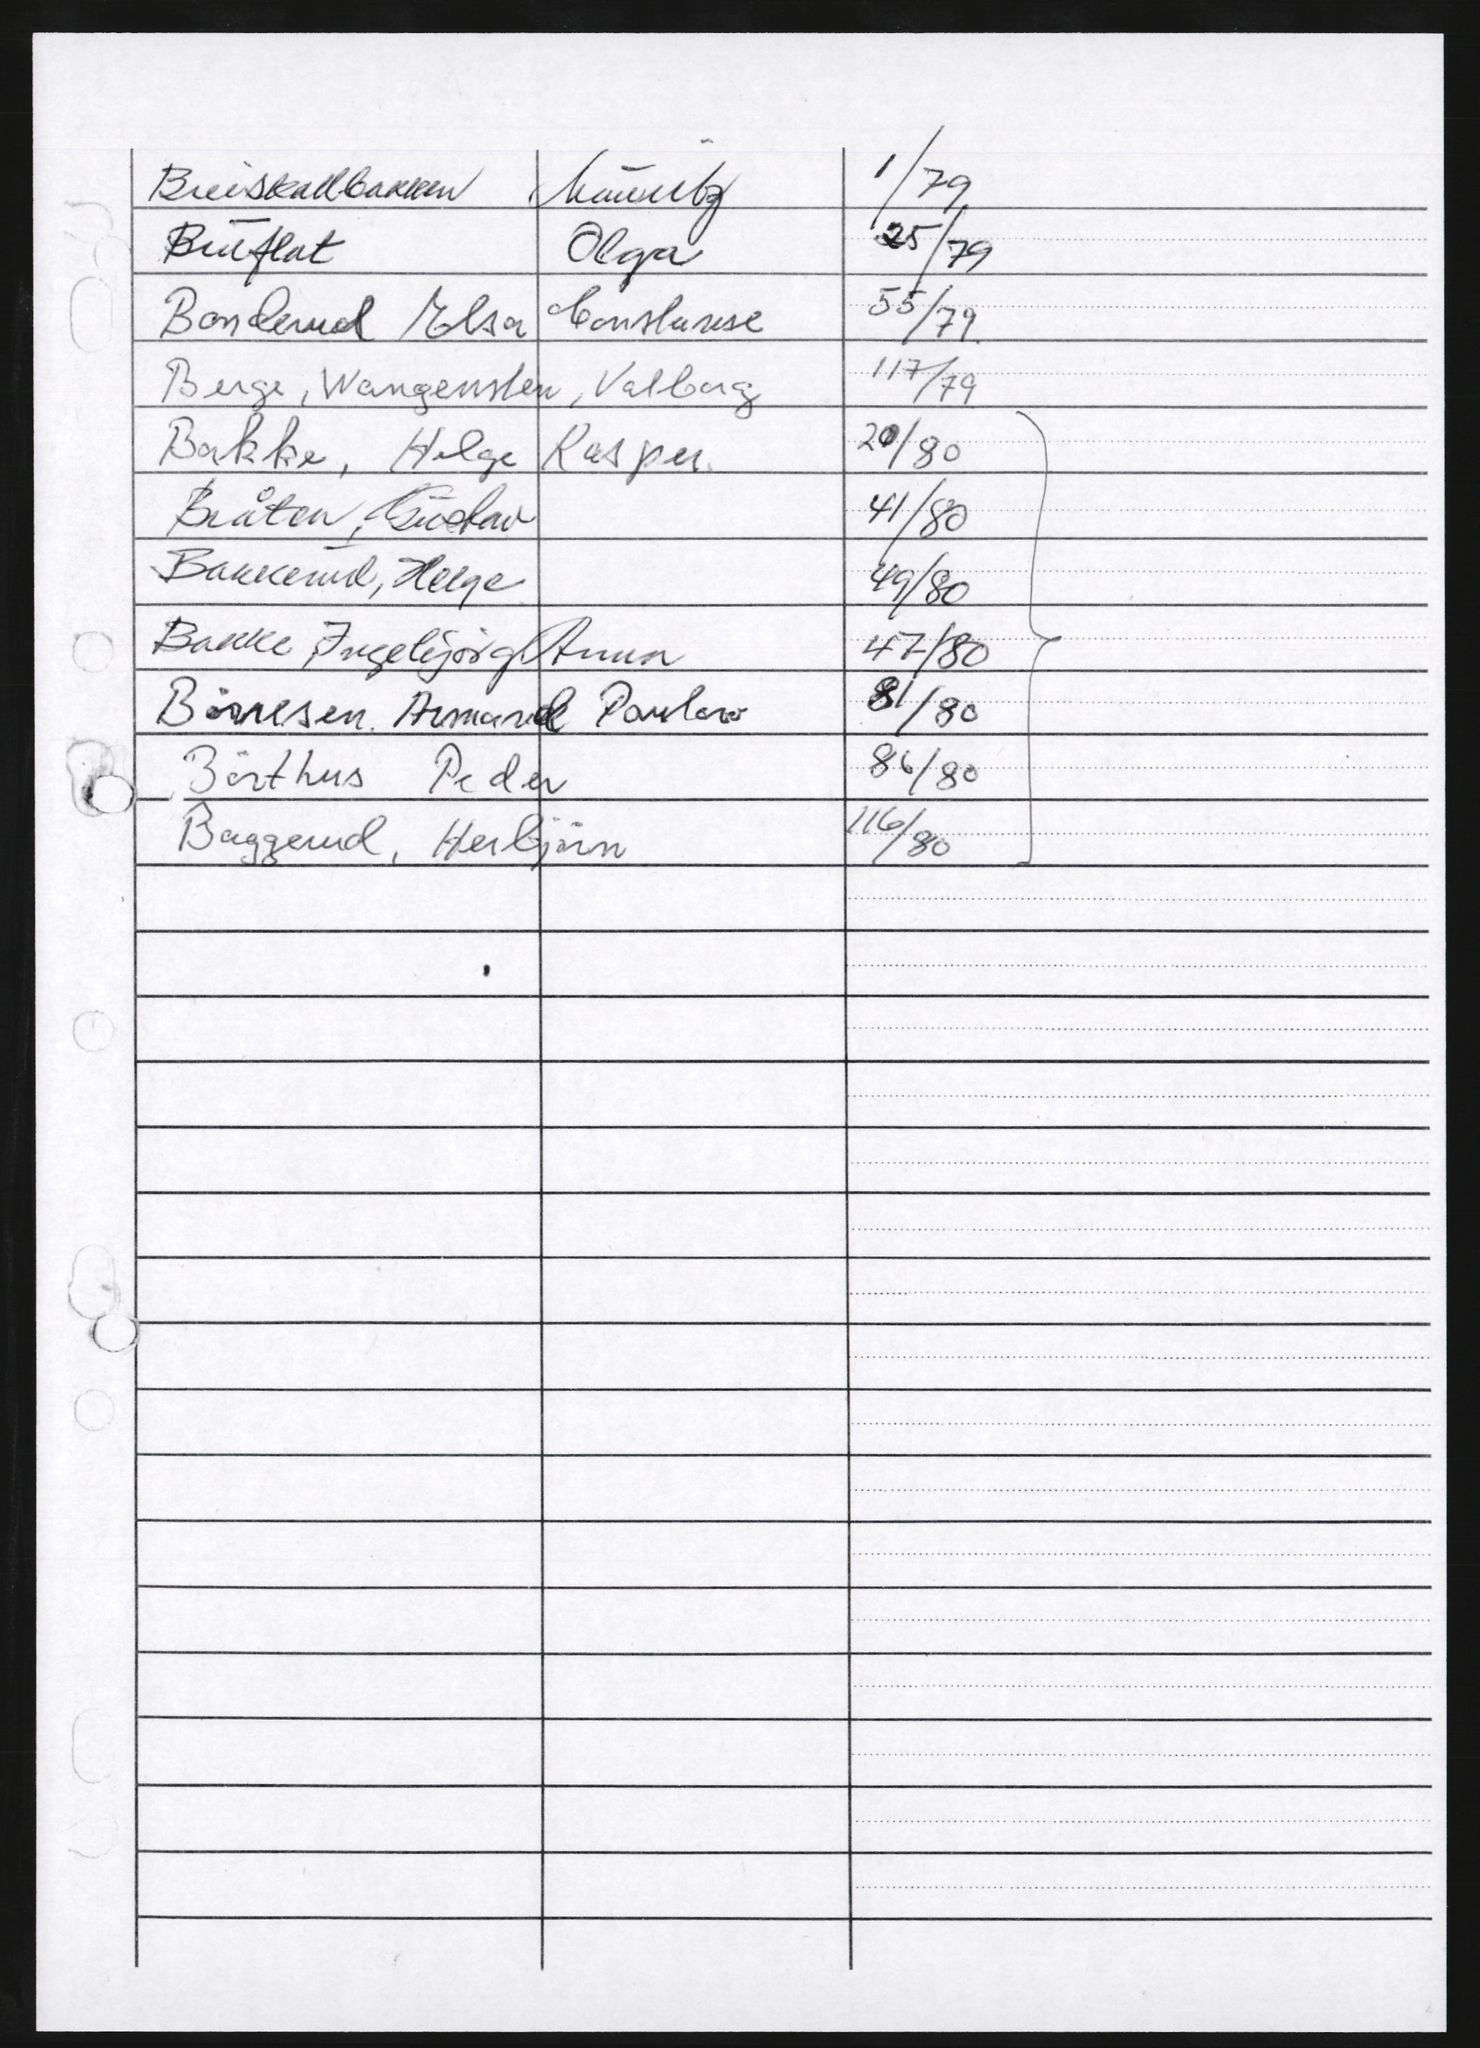 Breiskallbakken Mauritz 1/79
Bruflat Olga 25/79
Bonderud Elsa Constanse 55/79
Berge, Wangensten, Valborg 117/79
Bakke, Helge Kasper. 20/80
Bråten, Gustav 41/80
Bakkerud, Helge 49/80
Bakke, Ingebjørg Anna 47/80
Börresen. Armand Paulov 81/80
Börthus Peder 86/80
Baggerud, Herbjörn 116/80